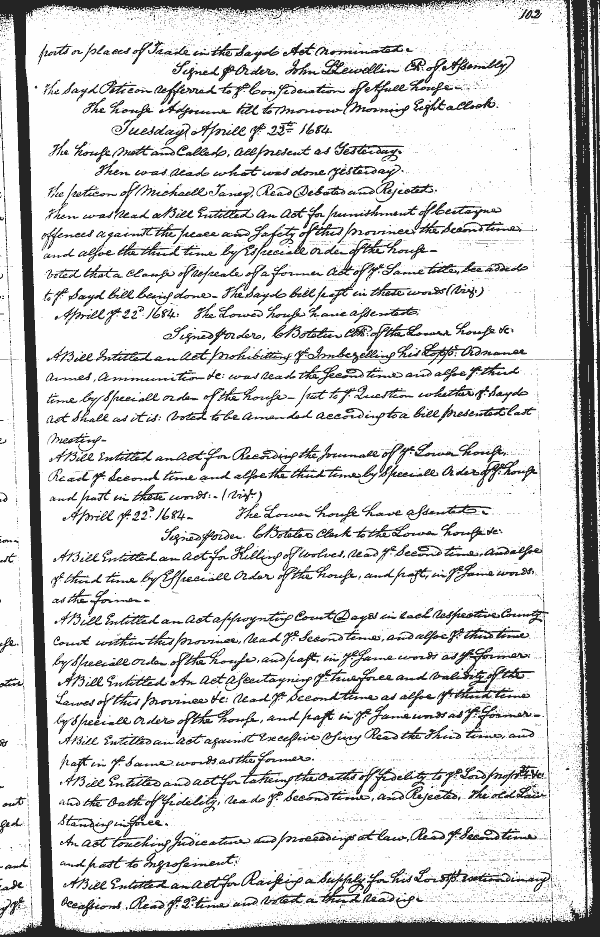 102
ports or places of Trade in the Sayd Act nominated.
Signed p Order. John Llewellin Clk. of Assembly
The Sayd Peticon refferred to ye Consideration of a full house.
The house Adjourne till to Morrow Morning Eight a Clock.
Tuesday Aprill ye 22th 1684.
The house Mett and Called, all present as Yesterday.
Then was read what was done Yesterday.
The peticon of Michaell Taney, Read Debated and Rejected.
Then was read a Bill Entitled An Act for punishment of Certayne
offences against the peace and Safety of this Province the Second time
and alsoe the third time by Especiall order of the house
Voted that a Clause of repeale of a former Act of ye Same title, bee added
to ye Sayd bill being done. The Sayd bill past in these words (Vizt)
Aprill ye 22d 1684. The Lower house have assented.
Signed p order, C Boteler Clk. of the Lower house &c.
A Bill Entitled an Act prohibitting ye Imbezelling his Lopps. Ordnance
armes, Ammunition &c. was read the Second time and alsoe ye third
time by Speciall order of the house - put to ye Question whether ye Sayd
act Shall as it is: Voted to be amended according to a bill presented last
meeting
A Bill Entitled an Act for Recording the Journall of ye Lower house,
Read ye Second time and alsoe the third time by Speciall Order of ye house
and past in these words - (Vizt)
Aprill ye 22d 1684 - The Lower house have assented -
Signed p order C Boteler Clerk to the Lower house &c.
A Bill Entitled an Act for Killing of Wolves, read ye Second time, and alsoe
ye third time by Especiall Order of the house, and past, in ye Same words
as the former -
A Bill Entitled an Act appoynting Court Dayes in each respective County
Court within this province, read ye Second time, and alsoe ye third time
by Speciall order of the house, and past, in ye Same words as ye former.
A Bill Entitled An Act Ascertayning ye true force and validity of the
Lawes of this province &c. read ye Second time as alsoe ye third time
by Speciall Order of the house, and past in ye Same words as ye former -
A Bill Entitled an Act against Excessive Usury Read the third time, and
past in ye Same words as the former.
A Bill Entitled and act for taking the Oaths of fidelity to ye Lord &c.
and the Oath of fidelity, read ye Second time, and Rejected, The old Law
Standing in force.
An Act touching Judicature and proceedings at law, Read ye Second time
and past to Ingrosement.
A Bill Entitled an Act for Raising a Supply for his Lordpps. extraordinary
Occassions, Read ye 2d time and Voted a third reading